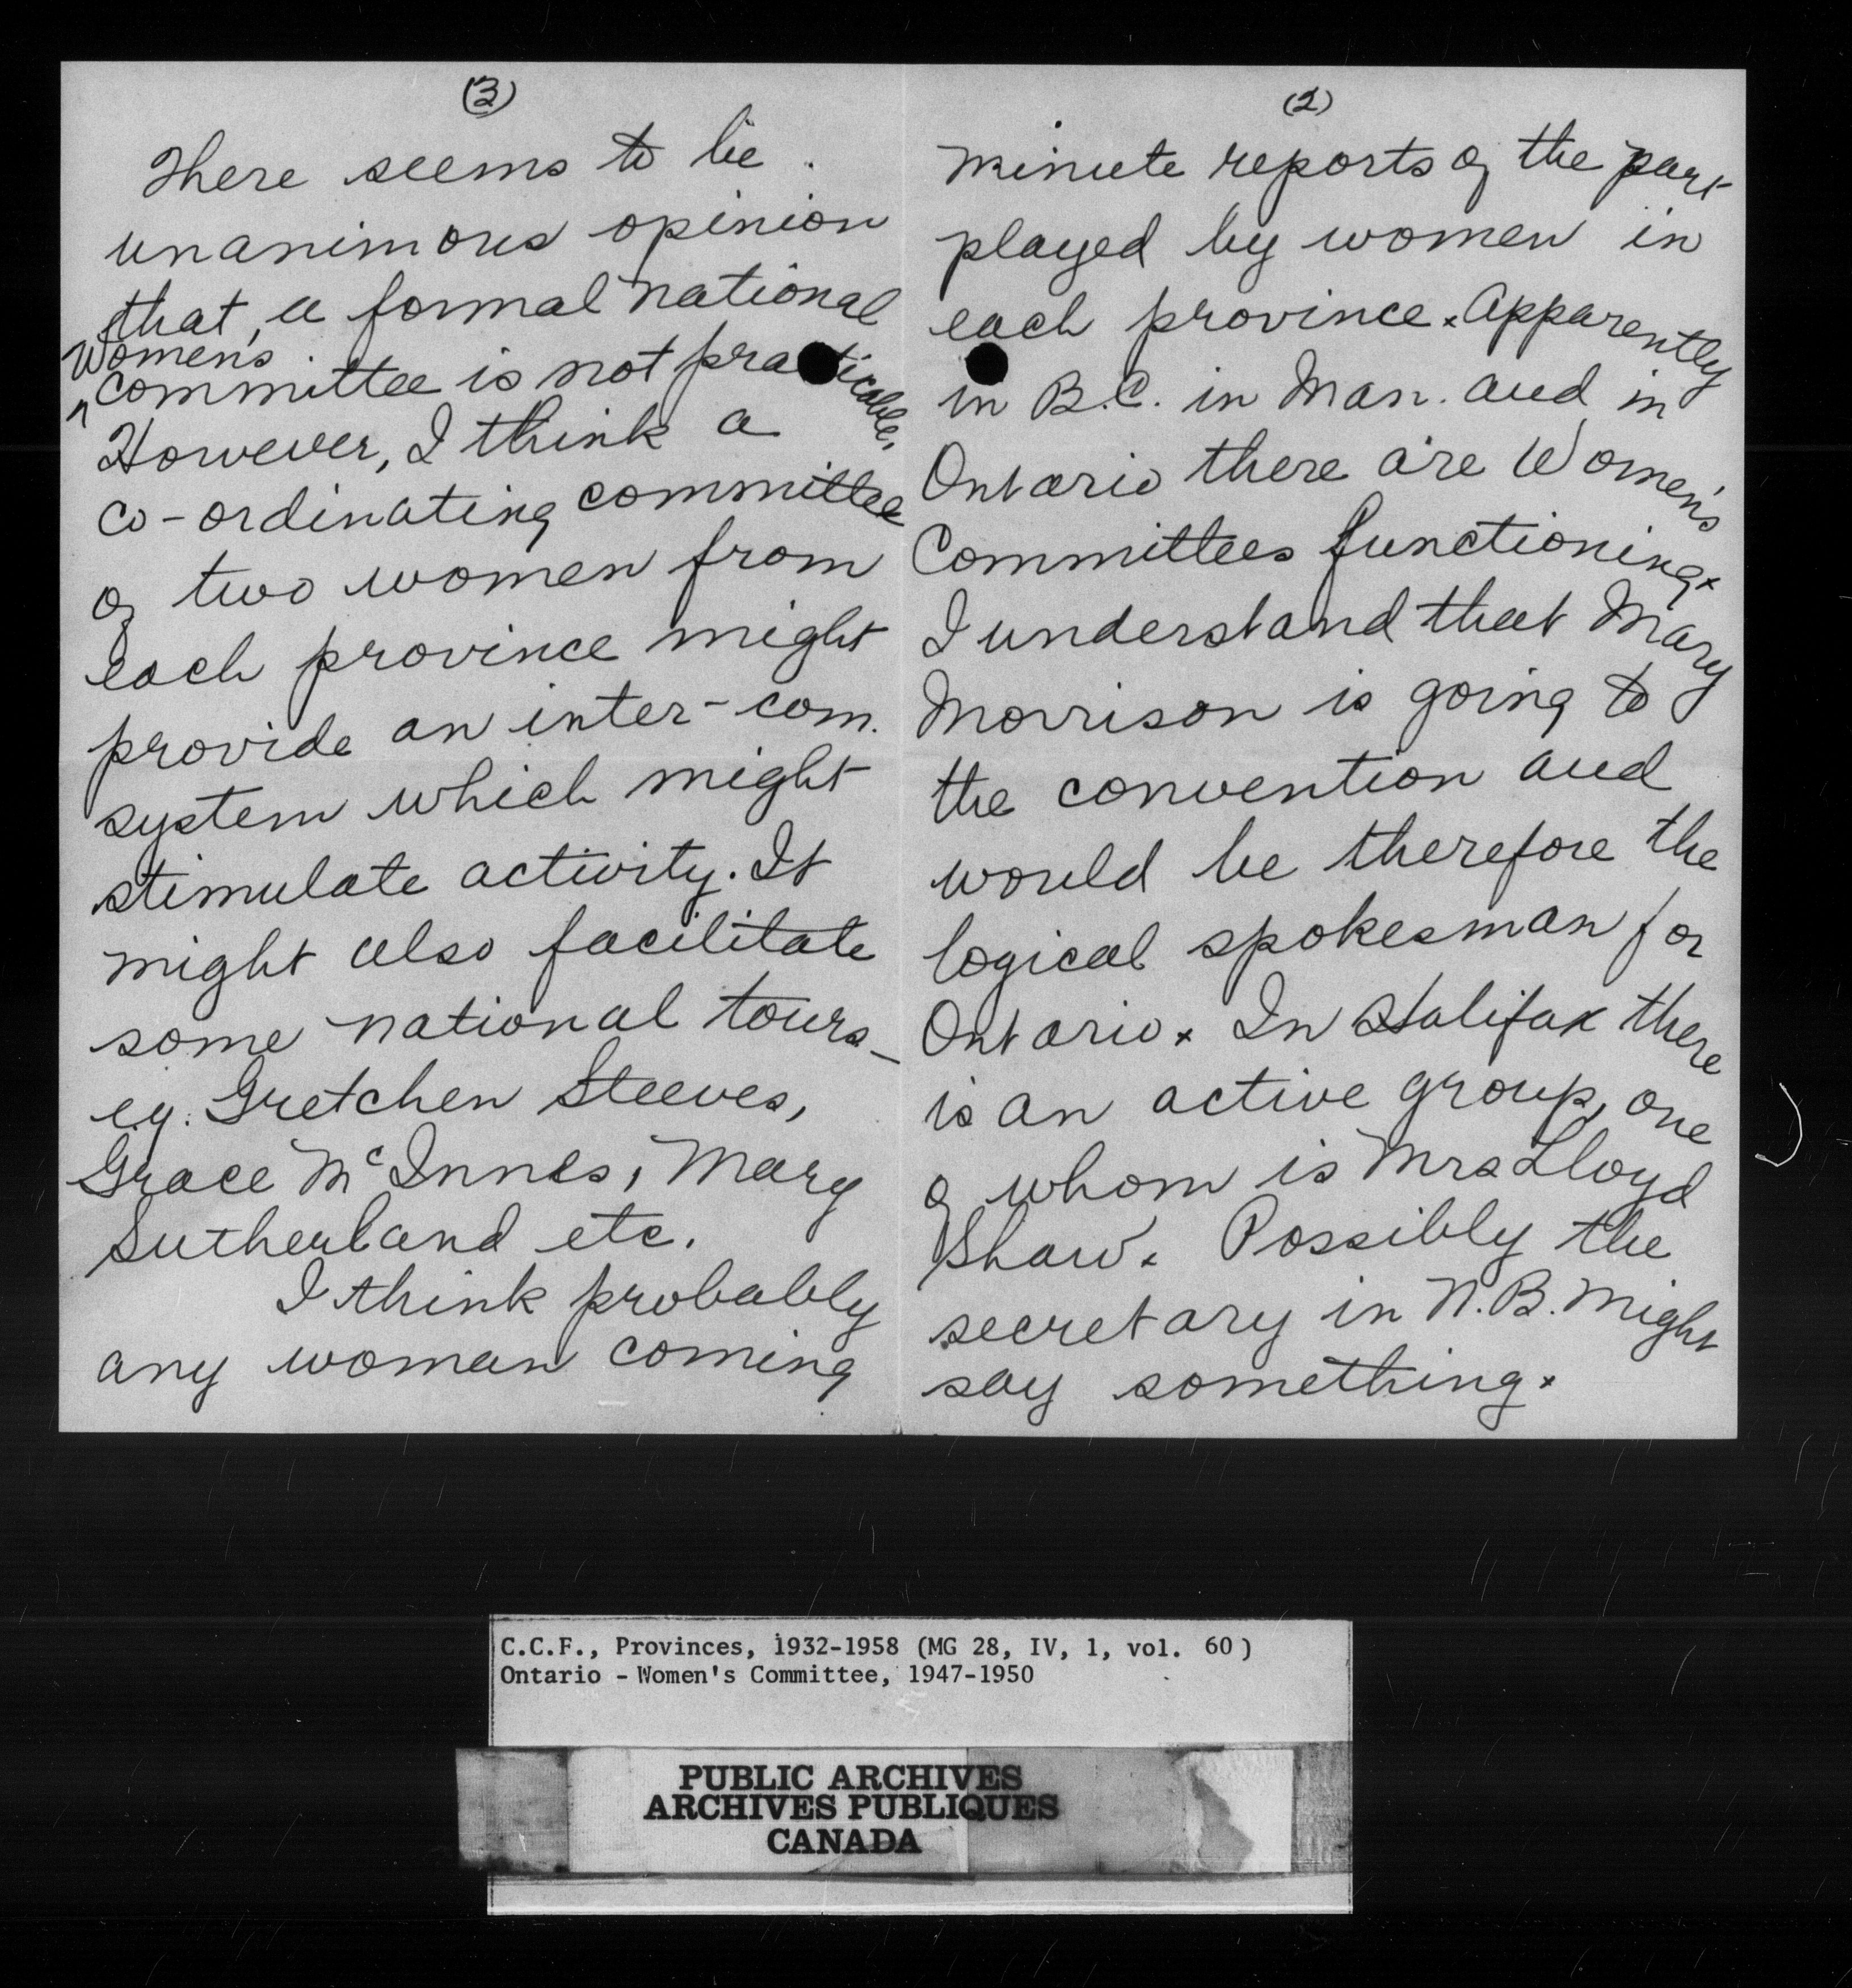 (3)
There seems to be
unanimous opinion
that, a formal national
Women's
^committee is not practicable.
However, I think a
co-ordinating committee
of two women from
each province might
provide an inter-com.
system which might
stimulate activity. It
might also facilitate
some national tours –
e.g. Gretchen Steeves,
Grace McInnes, Mary
Sutherland etc.
I think probably
any woman coming
(2)
minute reports of the part
played by women in
each province. Apparently
in B.C. in Man. and in
Ontario there are Women's
Committees functioning.
I understand that Mary
Morrison is going to
the convention and
would be therefore the
logical spokesman for
Ontario. In Halifax there
is an active group, one
of whom is Mrs Lloyd
Shaw. Possibly the
secretary in N.B. might
say something.
C.C.F., Provinces, 1932-1958 (MG 28, IV, 1, vol. 60)
Ontario - Women's Committee, 1947-1950
PUBLIC ARCHIVES
ARCHIVES PUBLIQUES
CANADA